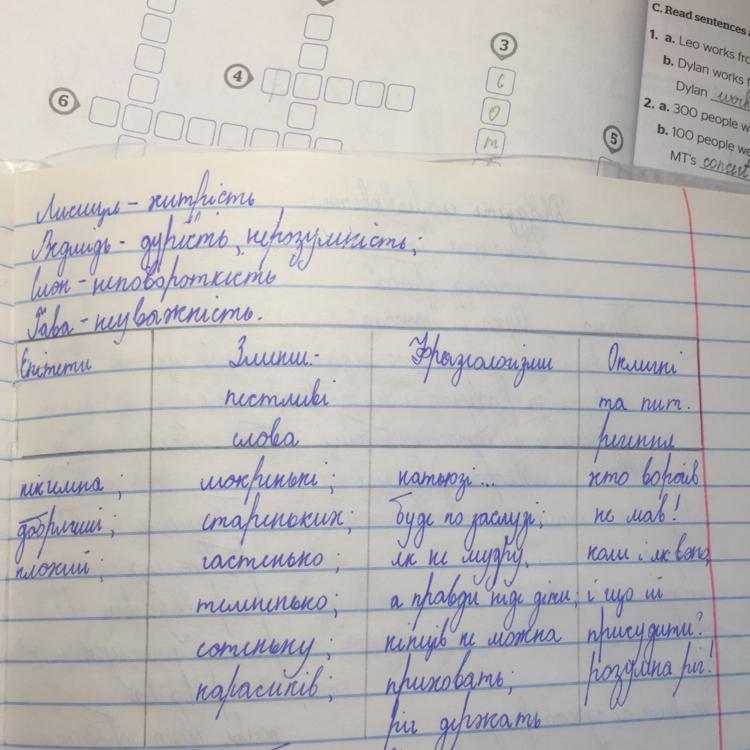 3
C
О
м
4
6
5
C. Read sentences a
1. a. Leo works fro
b. Dylan works f
Dylan work
2. a. 300 people w
b. 100 people we
MT's concert
Лисиця – хитрість
Ведмідь - дурість, нерозумність;
Слон - неповороткість
Ґава - неуважність.
Епітети
Зменш.-
пестливі
слова
Фразіологізми
Окличні
та пит.
речення
нікчемна ;
добрячиї ;
плохий ;
мокренькі ;
стареньких ;
частенько ;
темненько ;
сотеньку ;
карасиків ;
катюзі ...
буде по заслузі ;
як не мудру,
а правди ніде діти ;
кінців не можна
приховать ;
ріг держать
хто ворогів
не мав !
коли і як вона,
і що їй
присудити?
розумна річ!